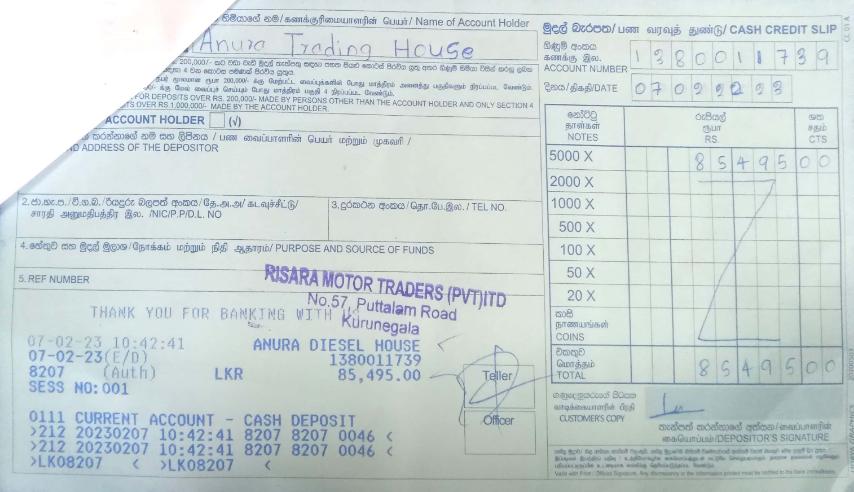 හිමියාගේ නම/கணக்குரிமையாளரின் பெயர்/ Name of Account Holder
Anura Trading House
FOR DEPOSITS OVER RS. 200,000/- MADE BY PERSONS OTHER THAN THE ACCOUNT HOLDER AND ONLY SECTION 4
OVER RS 1,000,000/- MADE BY THE ACCOUNT HOLDER.
ACCOUNT HOLDER (√)
කරන්නාගේ නම සහ ලිපිනය / பண வைப்பாளரின் பெயர் மற்றும் முகவரி /
ADDRESS OF THE DEPOSITOR
2. ජා.හැ.ප./වි.ග.බ./රියදුරු බලපත් අංකය/தே.அ.அ/ கடவுச்சீட்டு/
சாரதி அனுமதிபத்திர இல./NIC/P.P/D.L. NO
3. දුරකථන අංකය/தொ.பே.இல./ TEL NO.
4. හේතුව සහ මුදල් මූලාශ්‍ර/நோக்கம் மற்றும் நிதி ஆதாரம்/ PURPOSE AND SOURCE OF FUNDS
5. REF NUMBER
RISARA MOTOR TRADERS (PVT)lTD
No,57, Puttalam Road
Kurunegala
THANK YOU FOR BANKING WITH
07-02-23 10:42:41 ANURA DIESEL HOUSE
07-02-23(E/D) 1380011739
8207 (Auth) LKR 85,495.00
SESS NO:001
0111 CURRENT ACCOUNT - CASH DEPOSIT
>212 20230207 10:42:41 8207 8207 0046 <
>212 20230207 10:42:41 8207 8207 0046 <
>LK08207 < >LK08207 <
Teller
Officer
මුදල් බැරපත/பண வரவுத் துண்டு/ CASH CREDIT SLIP
ගිණුම් අංකය
கணக்கு இல.
ACCOUNT NUMBER 1380011739
දිනය/திகதி/DATE 07022023
නෝට්ටු
தாள்கள்
NOTES
රුපියල්
ரூபா
RS.
ශත
சதம்
CTS
5000 X 85495 00
2000 X
1000 X
500 X
100 X
50 X
20 X
කාසි
நாணயங்கள்
COINS
එකතුව
மொத்தம்
TOTAL 85495 00
ගනුදෙනුකරුගේ පිටපත
வாடிக்கையாளரின் பிரதி
CUSTOMER'S COPY
තැන්පත් කරන්නාගේ අත්සන/வைப்பாளரின்
கையொப்பம்/DEPOSITOR'S SIGNATURE